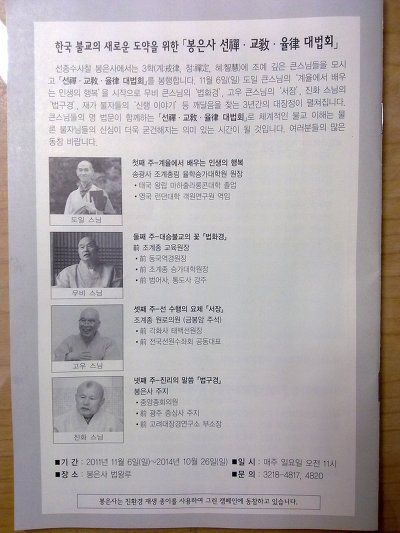 한국 불교의 새로운 도약을 위한 「봉은사 선禪 · 교敎 · 율律 대법회」
선종수사찰 봉은사에서는 3학(계:戒律, 정:禪定, 혜:智慧)에 조예 깊은 큰스님들을 모시
고 「선禪 · 교敎 · 율律 대법회」를 봉행합니다. 11월 6일(일) 도일 큰스님의 '계율에서 배우
는 인생의 행복'을 시작으로 무비 큰스님의 '법화경', 고우 큰스님의 '서장', 진화 스님의
'법구경', 재가 불자들의 '신행 이야기' 등 깨달음을 찾는 3년간의 대장정이 펼쳐집니다.
큰스님들의 명 법문이 함께하는 「선禪 · 교敎 · 율律 대법회」로 체계적인 불교 이해는 물
론 불자님들의 신심이 더욱 굳건해지는 의미 있는 시간이 될 것입니다. 여러분들의 많은
동참 바랍니다.
첫째 주-계율에서 배우는 인생의 행복
송광사 조계총림 율학승가대학원 원장
• 태국 왕립 마하출라롱콘대학 졸업
• 영국 런던대학 객원연구원 역임
도일 스님
둘째 주-대승불교의 꽃 「법화경」
前 조계종 교육원장
• 前 동국역경원장
• 前 조계종 승가대학원장
• 前 범어사, 통도사 강주
무비 스님
셋째 주-선 수행의 요체 「서장」
조계종 원로의원 (금봉암 주석)
• 前 각화사 태백선원장
• 前 전국선원수좌회 공동대표
고우 스님
넷째 주-진리의 말씀 「법구경」
봉은사 주지
• 중앙종회의원
• 前 광주 증심사 주지
• 前 고려대장경연구소 부소장
진화 스님
■ 기 간 : 2011년 11월 6일(일)~2014년 10월 26일(일) ■ 일 시 : 매주 일요일 오전 11시
■ 장 소 : 봉은사 법왕루 ■ 문 의 : 3218-4817, 4820
봉은사는 친환경 재생 종이를 사용하며 그린 캠페인에 동참하고 있습니다.